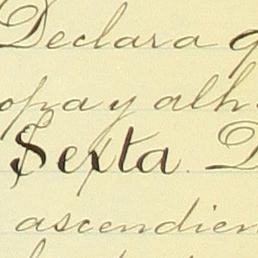 Declara q
opa y alh
Sexta. D
ascendien